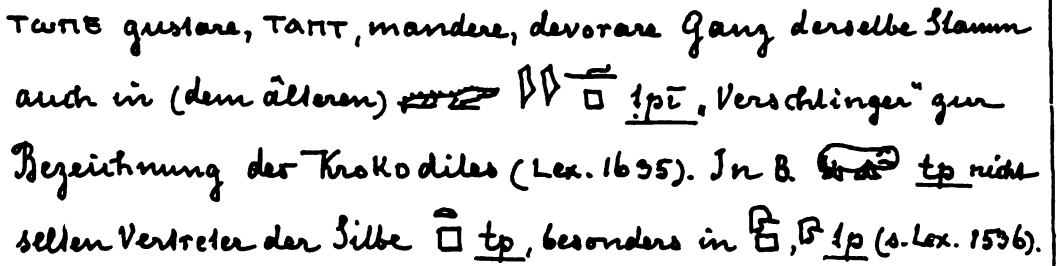 ⲧⲱⲡⲉ gustare, ⲧⲁⲡⲧ, mandere, devorare Ganz derselbe Stamm
auch in (dem älteren) tpī „Verschlinger“ zur
Bezeichnung des Krokodiles (Lex. 1635). In B. tp nicht
selten Vertreter der Silbe tp, besonders in , tp (s. Lex. 1536).